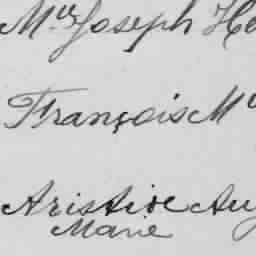 Mgr Joseph He
François M
Aristide Au
Marie